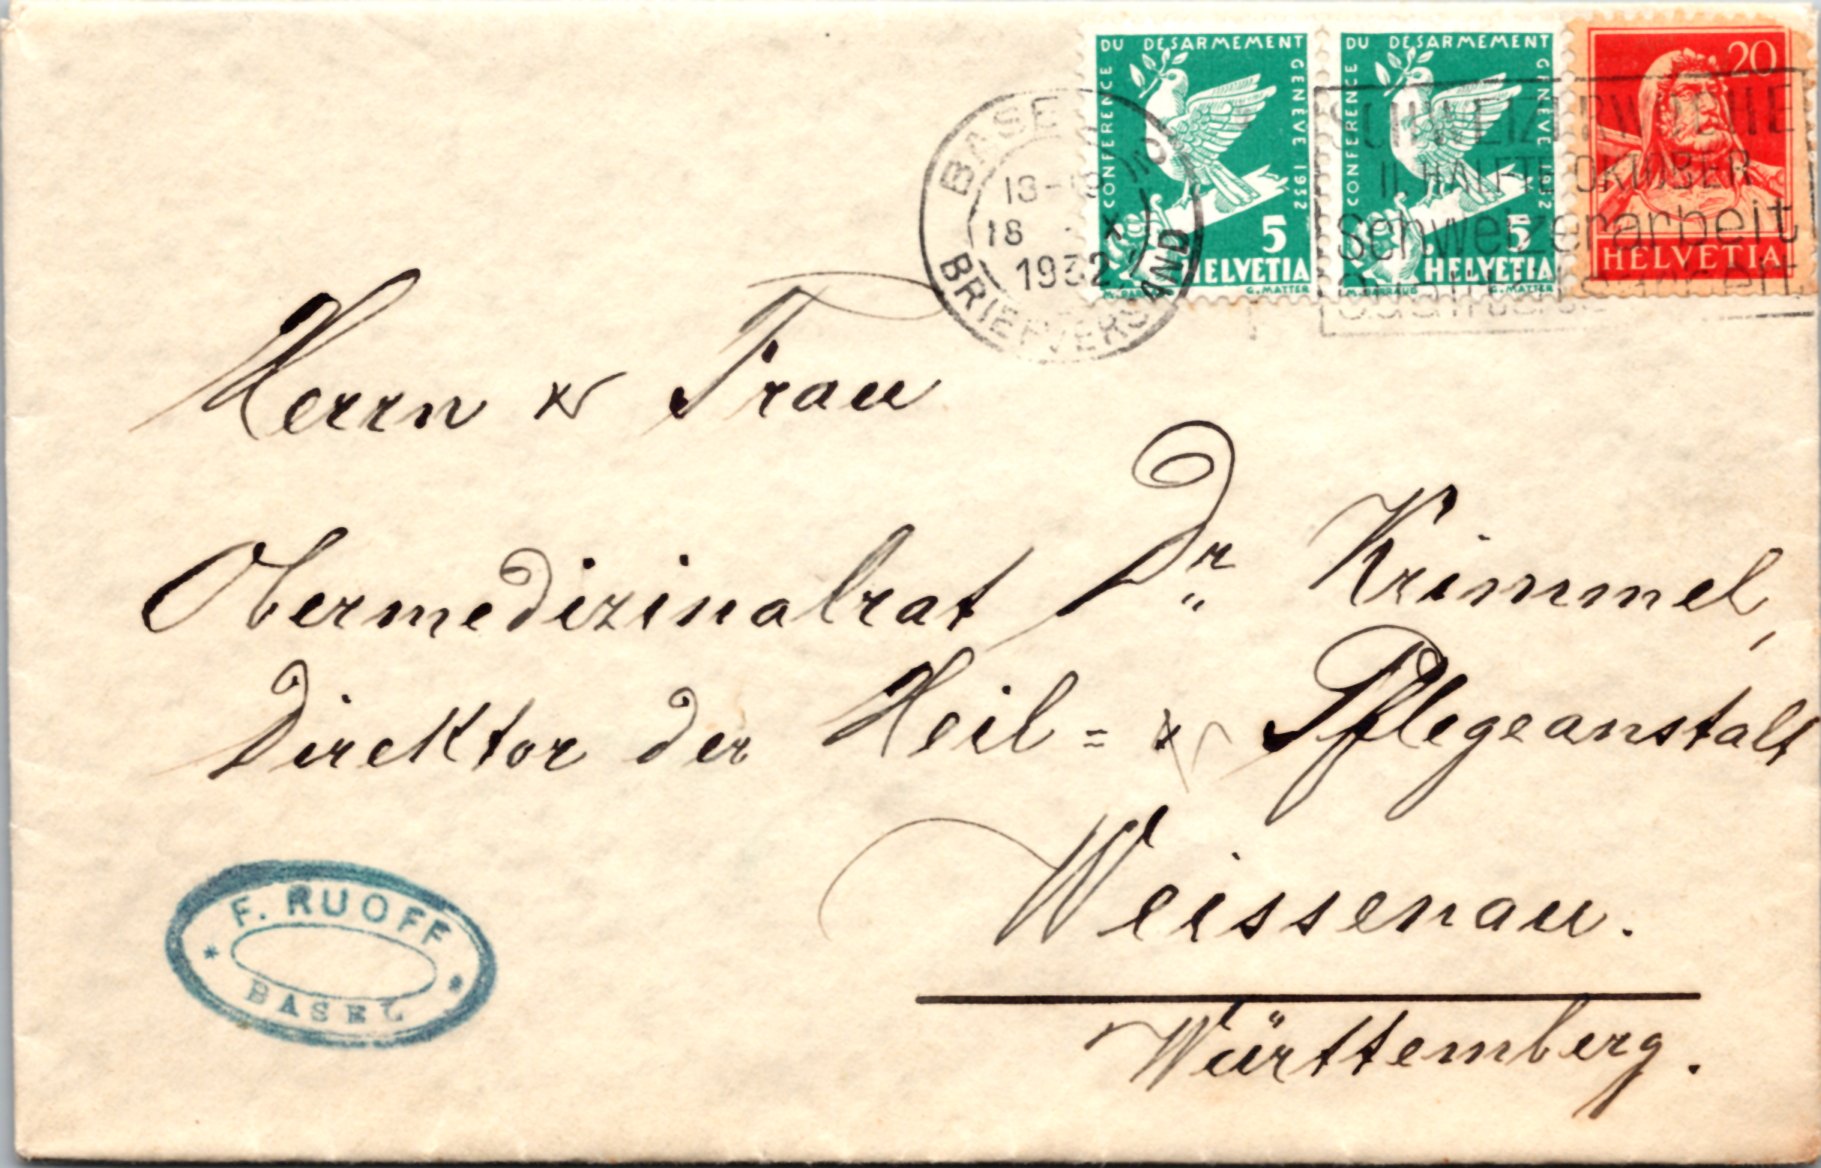 CONFERENCE DU DESARMEMENT GENEVE 1932
5
HELVETIA
G. MATTER
CONFERENCE DU DESARMEMENT GENEVE 1932
5
HELVETIA
G. MATTER
20
HELVETIA
BASEL
18
1932
BRIEFVERSAND
SCHWEIZERWOCHE
II HÄLFTE OKTOBER
Schweizerarbeit
Herrn & Frau
Obermedizinalrat Dr. Krimmel,
Direktor der Heil= & Pflegeanstalt
Weissenau.
Württemberg.
F. RUOFF
* *
BASEL